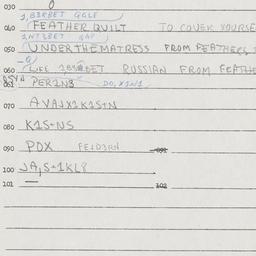 030
1,BERBET GGLE
040 FEATHER QUILT TO COVER YOURSE
1NT3BET GAP
050 UNDERTHEMATRESS FROM FEATHERS
060 RUSSIAN FROM FEATHE
061 PER1N3 DO,X1N1
070 AVAJX1K1S+N
080 K1S+NS
090 PDX FE1D3RN
100 JA,S+1KL8
101 102